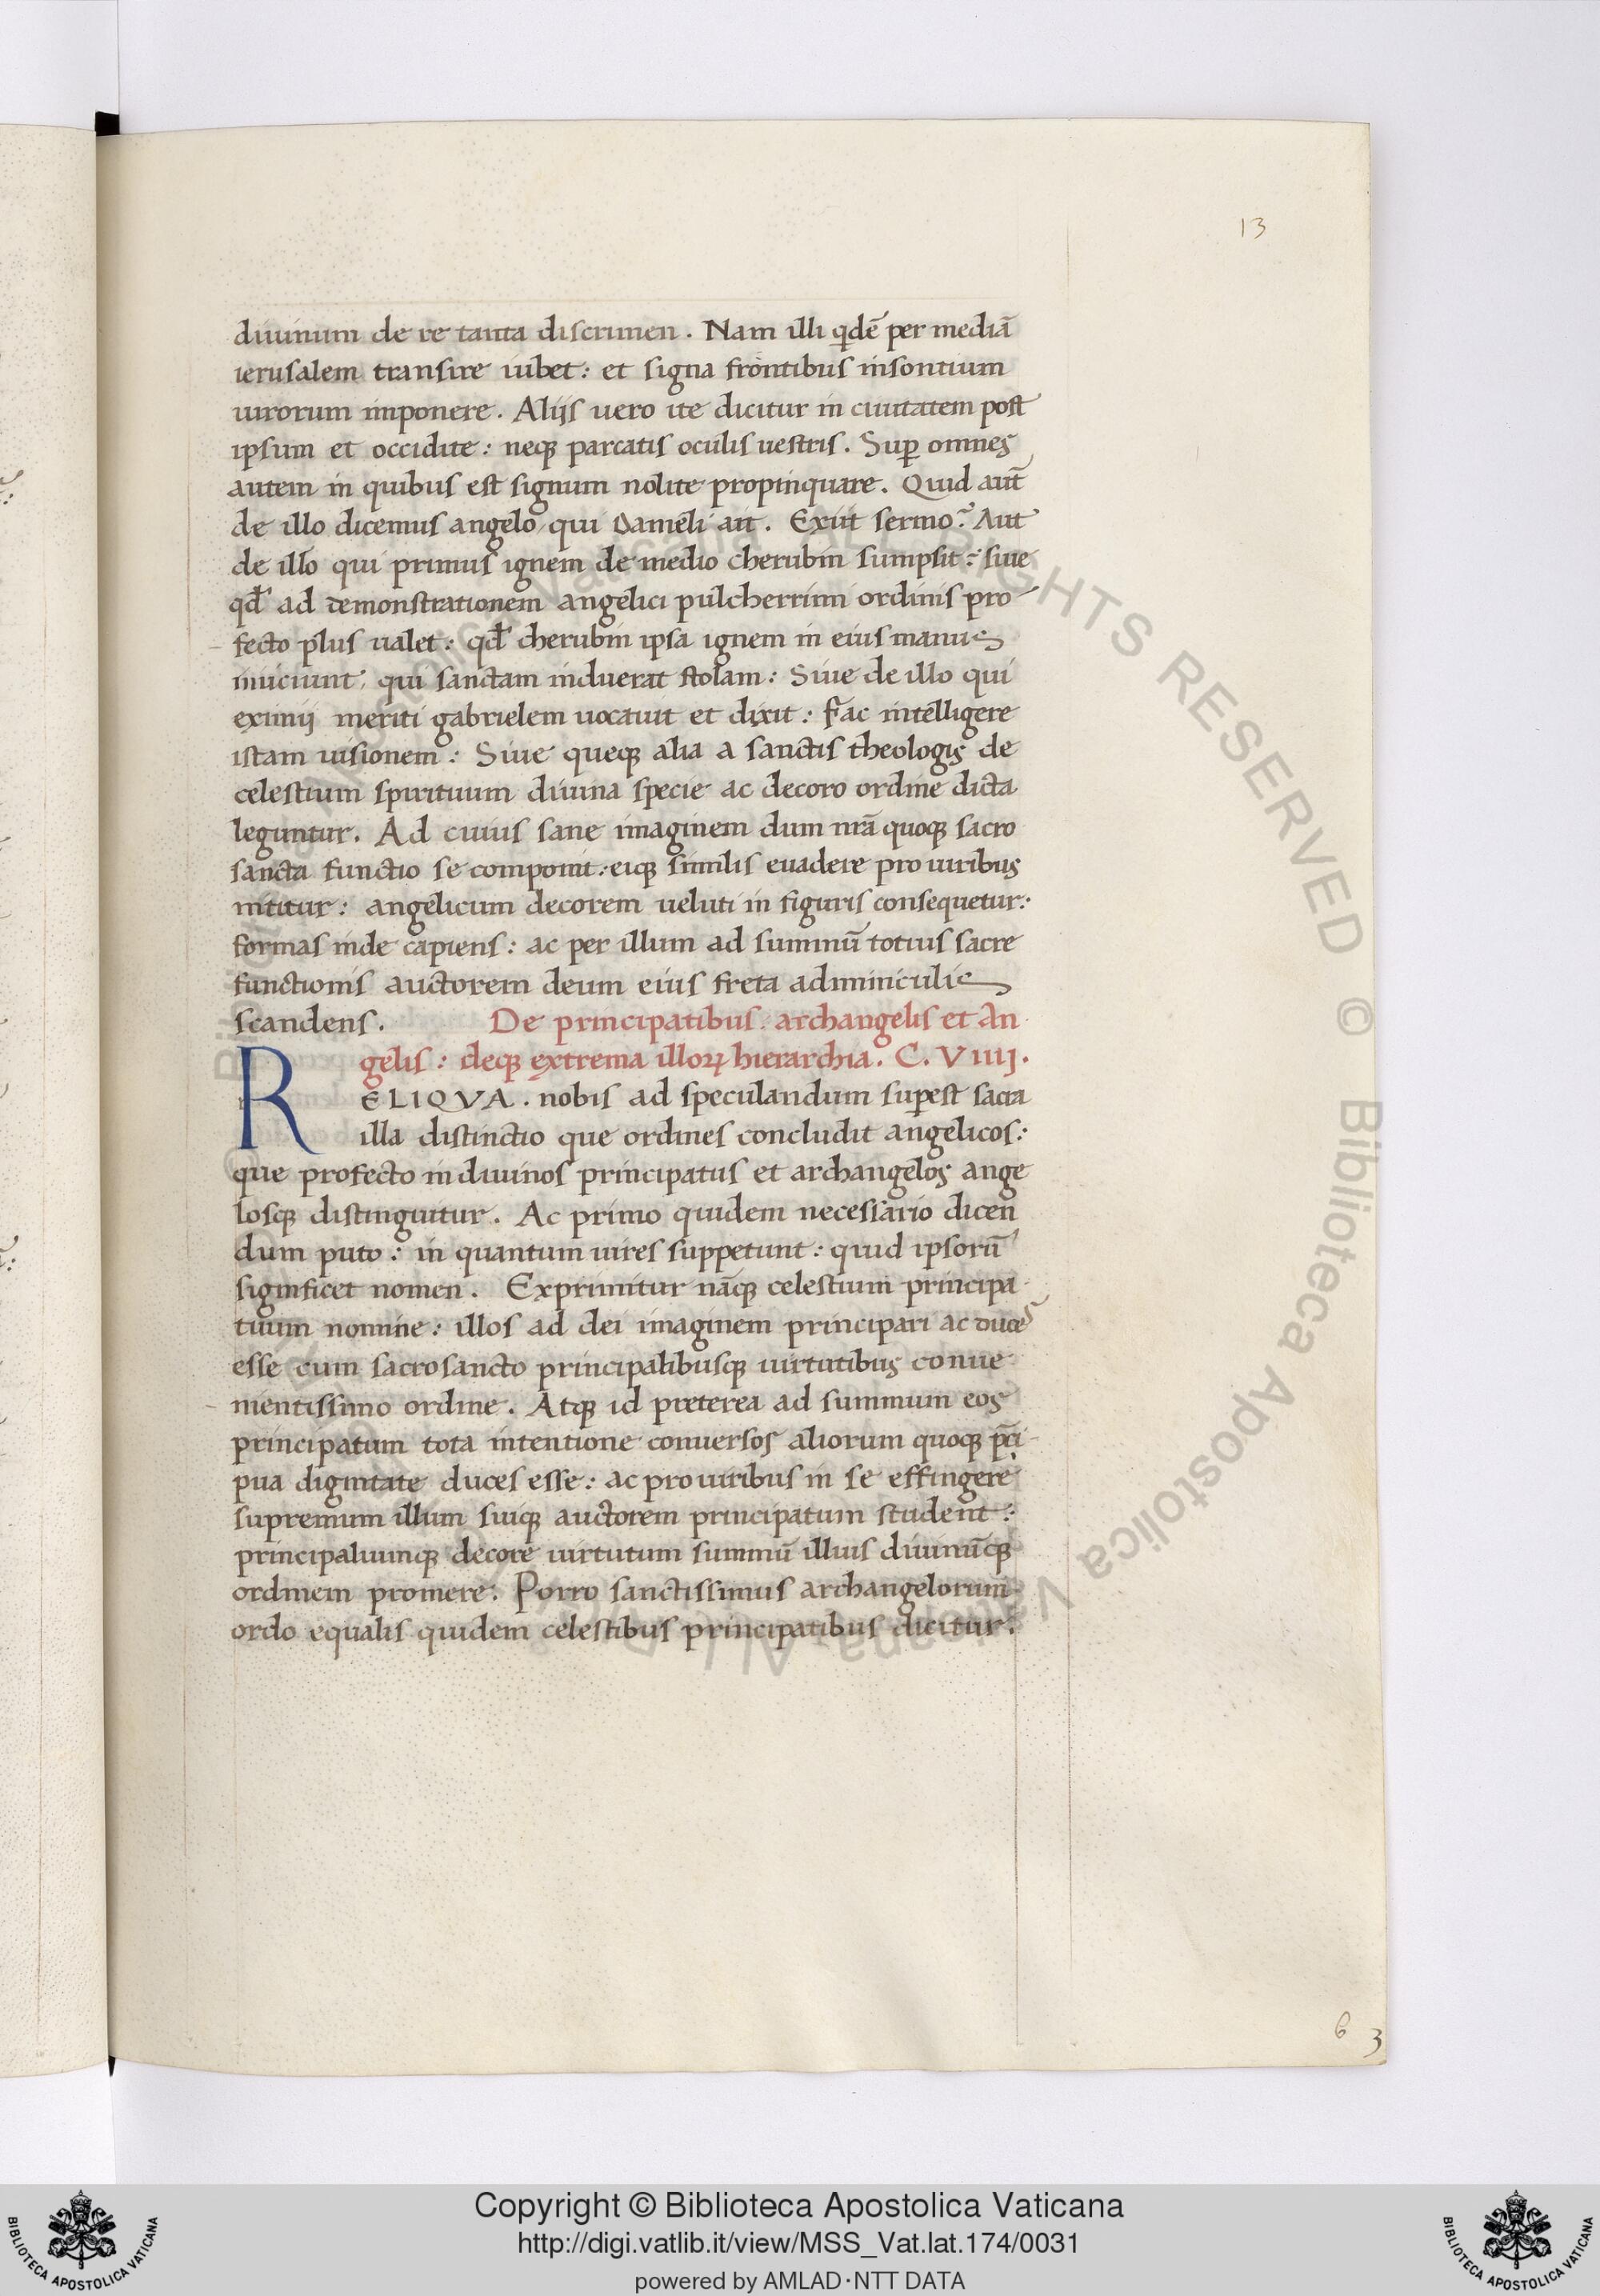 13
diuinum de re tanta discrimen. Nam illi qdē per mediā
ierusalem transire iubet: et signa frontibus insontium
uirorum imponere. Alijs uero ite dicitur in ciuitatem post
ipsum et occidite: neqꝫ parcatis oculis uestris. Suꝑ omnes
autem in quibus est signum nolite propinquare. Quid aut̄
de illo dicemus angelo qui Danieli ait. Exiit sermo? Aut
de illo qui primus ignem de medio cherubin sumpsit? siue
qđ ad demonstrationem angelici pulcherrimi ordinis pro
fecto plus ualet: qđ cherubin ipsa ignem in eius manus
iniiciunt, qui sanctam induerat stolam: Siue de illo qui
eximij meriti gabrielem uocauit et dixit: Fac intelligere
istam uisionem: Siue queqꝫ alia a sanctis theologis de
celestium spirituum diuina specie ac decoro ordine dicta
leguntur. Ad cuius sane imaginem dum nrā quoqꝫ sacro
sancta functio se componit: eiqꝫ similis euadere pro uiribus
nititur: angelicum decorem ueluti in figuris consequetur:
formas inde capiens: ac per illum ad summū totius sacre
functionis auctorem deum eius freta adminiculis
scandens. De principatibus. archangelis et An
gelis: deqꝫ extrema illoꝝ hierarchia. C. VIIIJ.
RELIQVA. nobis ad speculandum suꝑest sacra
illa distinctio que ordines concludit angelicos:
que profecto in diuinos principatus et archangelos ange
losqꝫ distinguitur. Ac primo quidem necessario dicen
dum puto: in quantum uires suppetunt: quid ipsorū
significet nomen. Exprimitur nāqꝫ celestium principa
tuum nomine: illos ad dei imaginem principari ac duces
esse cum sacrosancto principalibusqꝫ uirtutibus conue
nientissimo ordine. Atqꝫ id preterea ad summum eos
principatum tota intentione conuersos aliorum quoqꝫ p̄ci
pua dignitate duces esse: ac pro uiribus in se effingere
supremum illum suiqꝫ auctorem principatum student:
principaliumqꝫ decore uirtutum summū illius diuinūqꝫ
ordinem promere. Porro sanctissimus archangelorum
ordo equalis quidem celestibus principatibus dicitur.
6 3
© Biblioteca Apostolica Vaticana ALL RIGHTS RESERVED
Copyright © Biblioteca Apostolica Vaticana
http://digi.vatlib.it/view/MSS_Vat.lat.174/0031
powered by AMLAD·NTT DATA
BIBLIOTECA APOSTOLICA VATICANA
BIBLIOTECA APOSTOLICA VATICANA